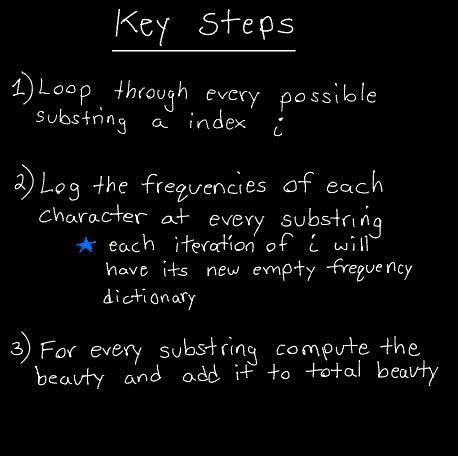 Key Steps
1) Loop through every possible
substring a index i
2) Log the frequencies of each
character at every substring
★ each iteration of i will
have its new empty frequency
dictionary
3) For every substring compute the
beauty and add it to total beauty